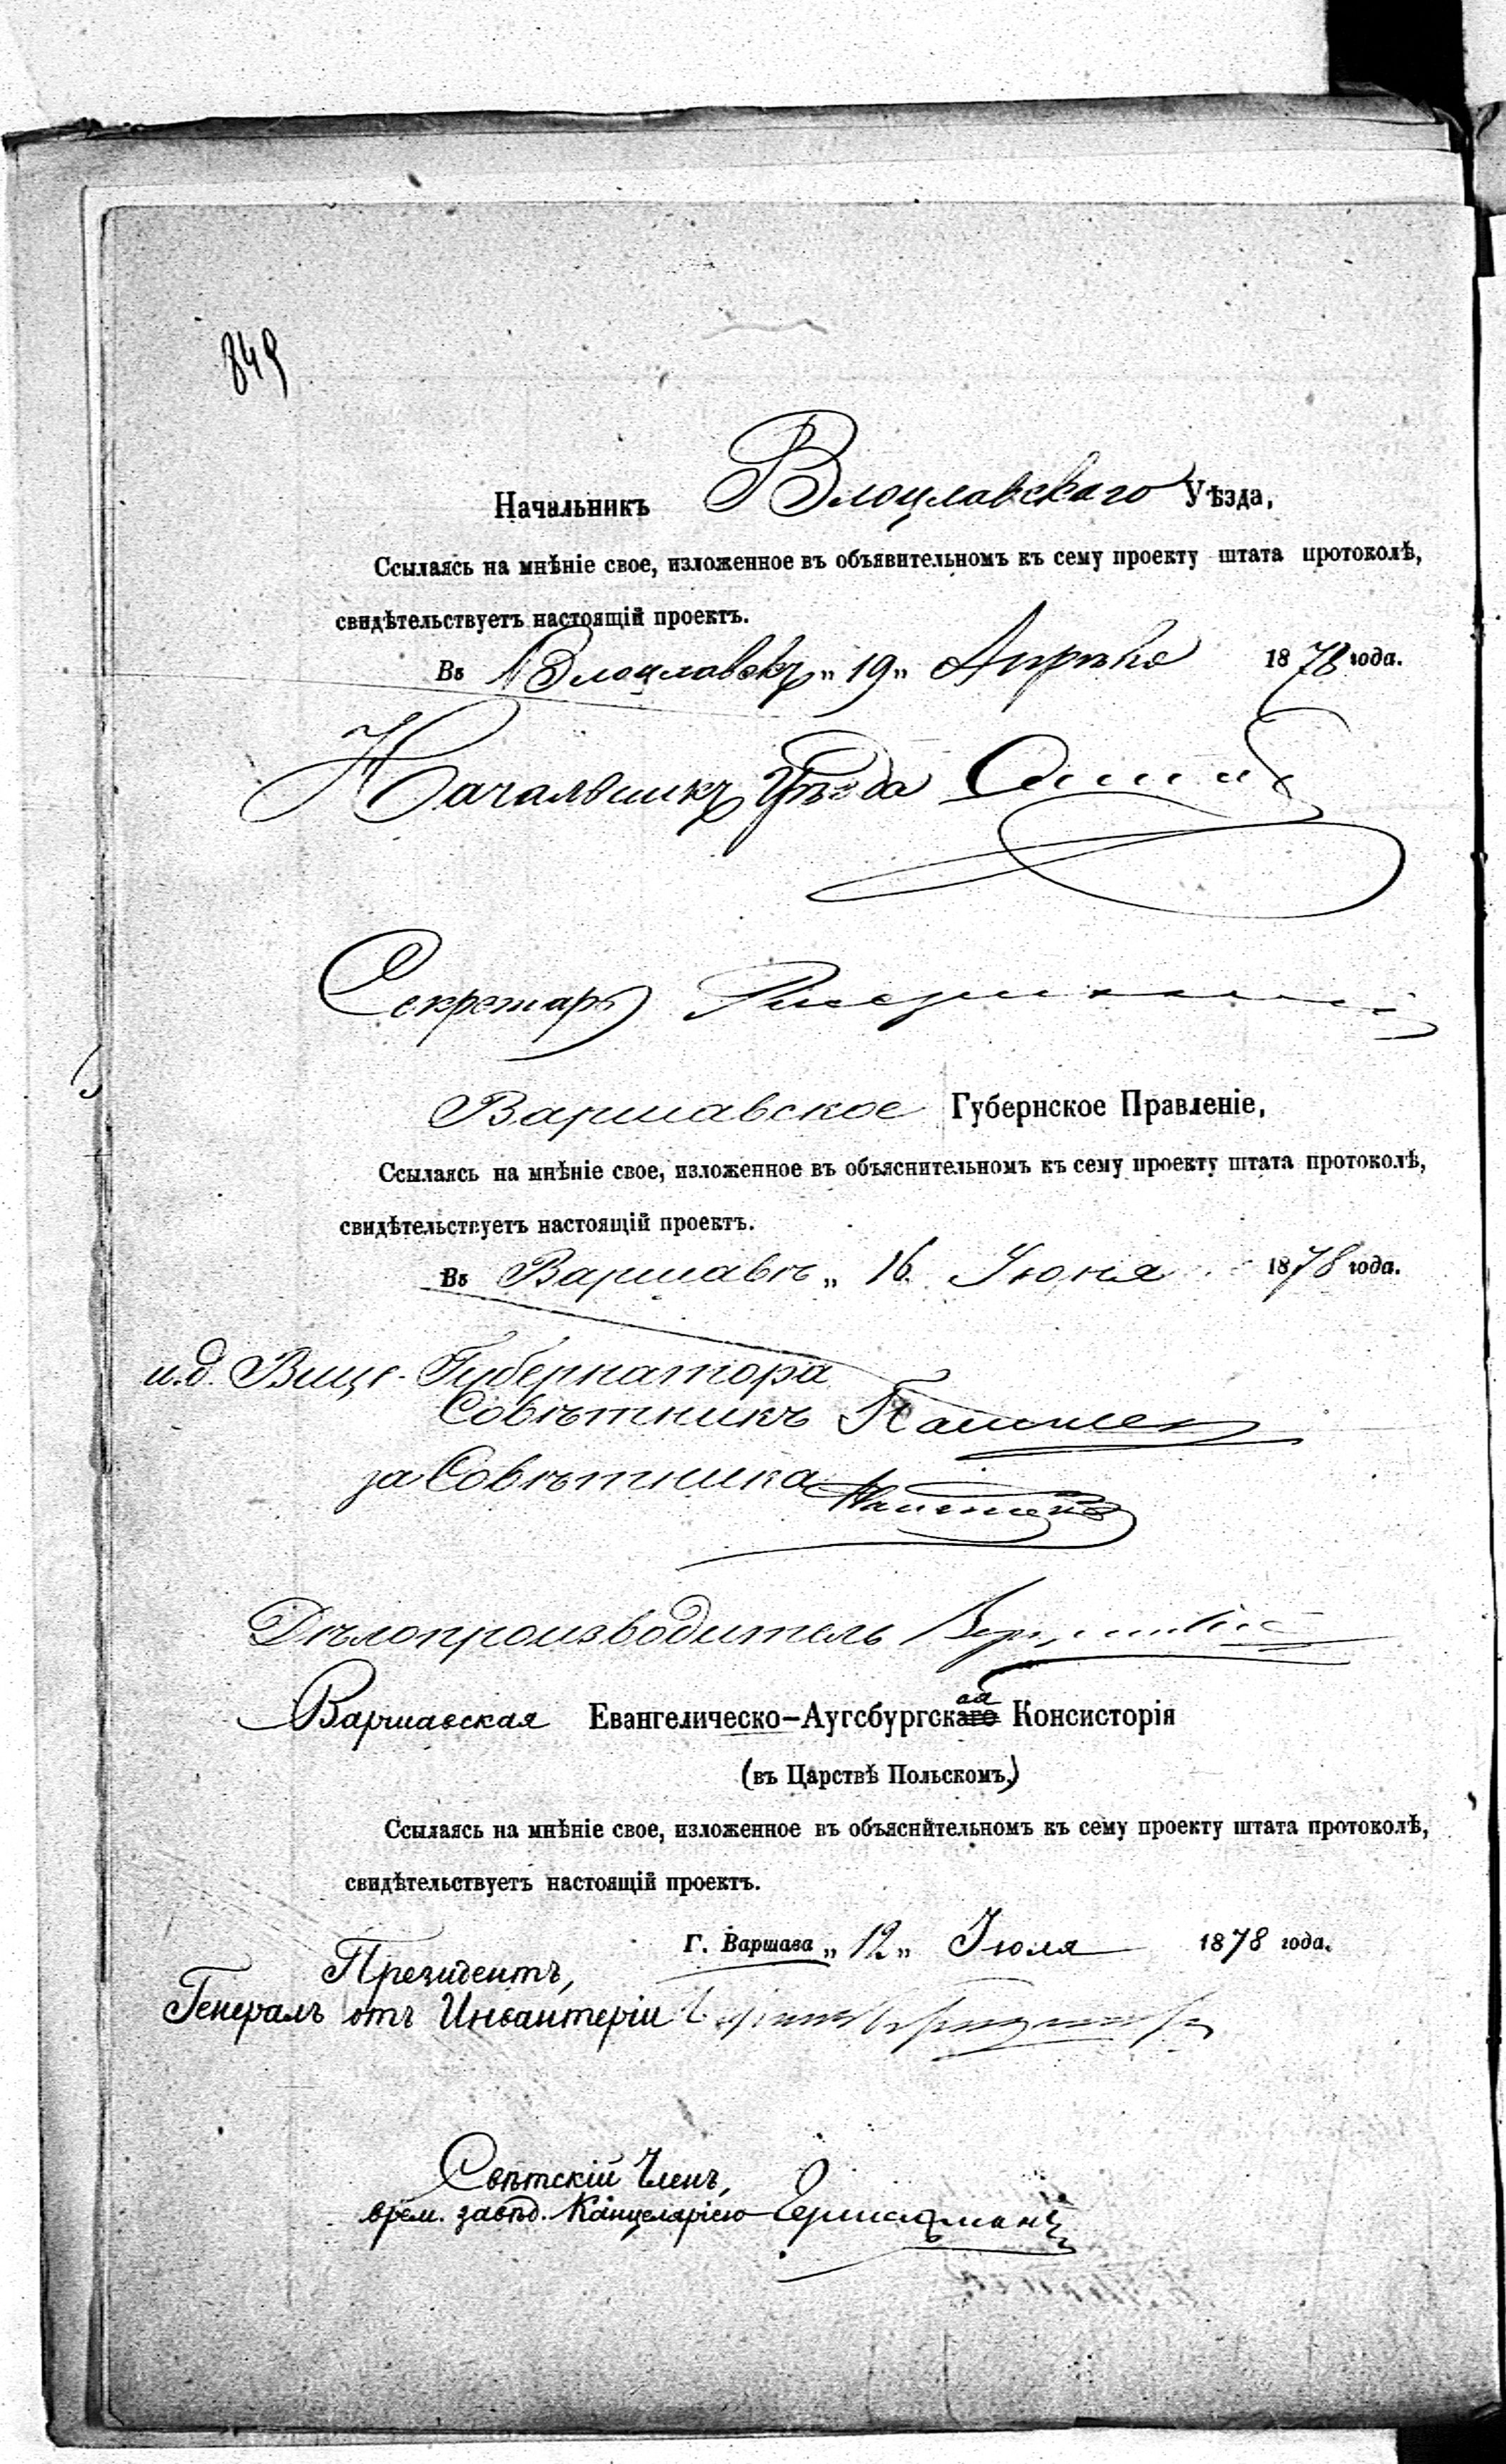 849
Начальникъ Влоцлавскаго Уѣзда,
Ссылаясь на мнѣніе свое, изложенное въ объявительномъ къ сему проекту штата протоколѣ,
свидѣтельствуетъ настоящій проектъ.
Въ Влоцлавскѣ „ 19 „ Апрѣля 1878 года.
Начальникъ Уѣзда
Секретарь
Варшавское Губернское Правленіе,
Ссылаясь на мнѣніе свое, изложенное въ объяснительномъ къ сему проекту штата протоколѣ,
свидѣтельствуетъ настоящій проектъ.
Въ Варшавѣ „ 16 Іюня 1878 года.
и.д. Вице-Губернатора
Совѣтникъ
за Совѣтника
Дѣлопроизводитель
Варшавская Евангелическо-Аугсбургская Консисторія
(въ Царствѣ Польскомъ,)
Ссылаясь на мнѣніе свое, изложенное въ объяснительномъ къ сему проекту штата протоколѣ,
свидѣтельствуетъ настоящій проектъ.
Г. Варшава „ 12 „ Іюля 1878 года.
Президентъ,
Генералъ отъ Инфантеріи
Свѣтскій Членъ,
врем. завѣд. Канцеляріею